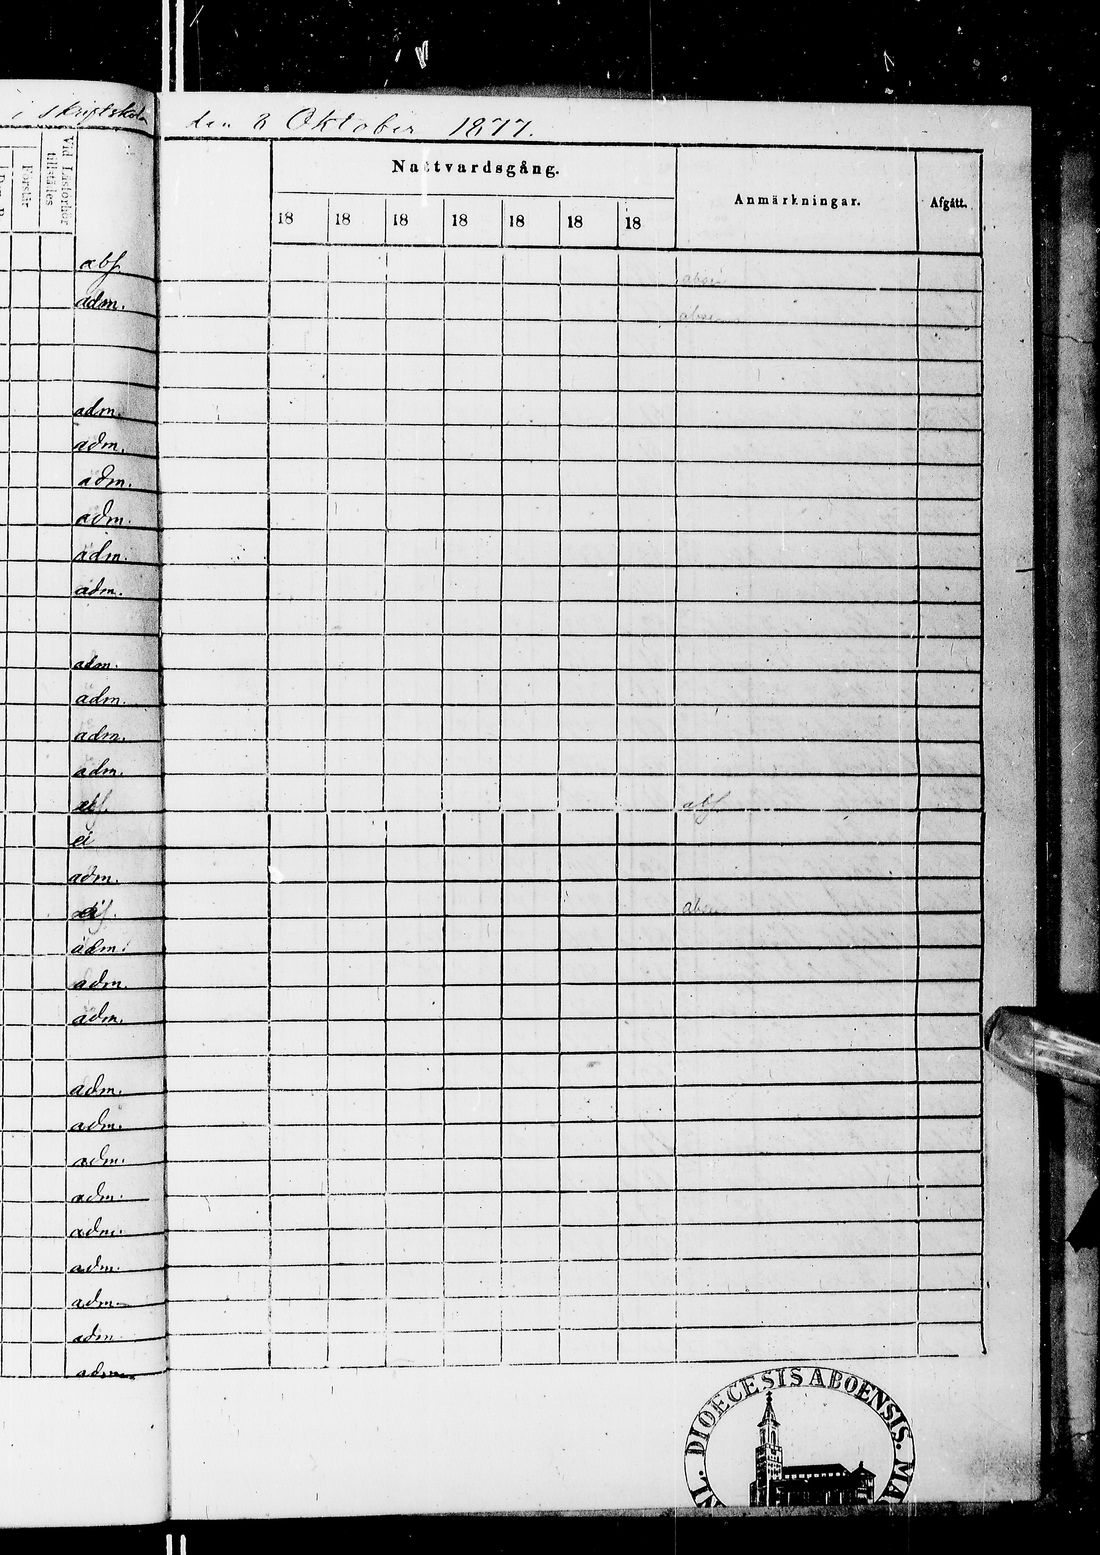 i Skriftskola den 2 Oktober 1877.
Nattvardsgång.
Anmärkningar.
Afgått.
Förstår
Vid Läsförhör tillstädes
18 18 18 18 18 18 18
abs.
adm.
adm.
adm.
adm.
adm.
adm.
adm.
adm.
adm.
adm.
adm.
abs. abs.
ei
adm.
adm.
adm.
adm.
adm.
adm.
adm.
adm.
adm.
adm.
adm.
adm.
adm.
DIOECESIS ABOENSIS.